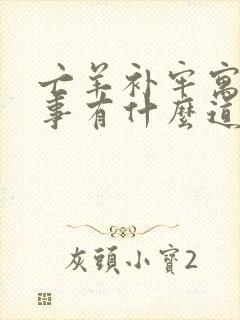 亡羊补牢寓
事有什麽道
灰頭小寶2